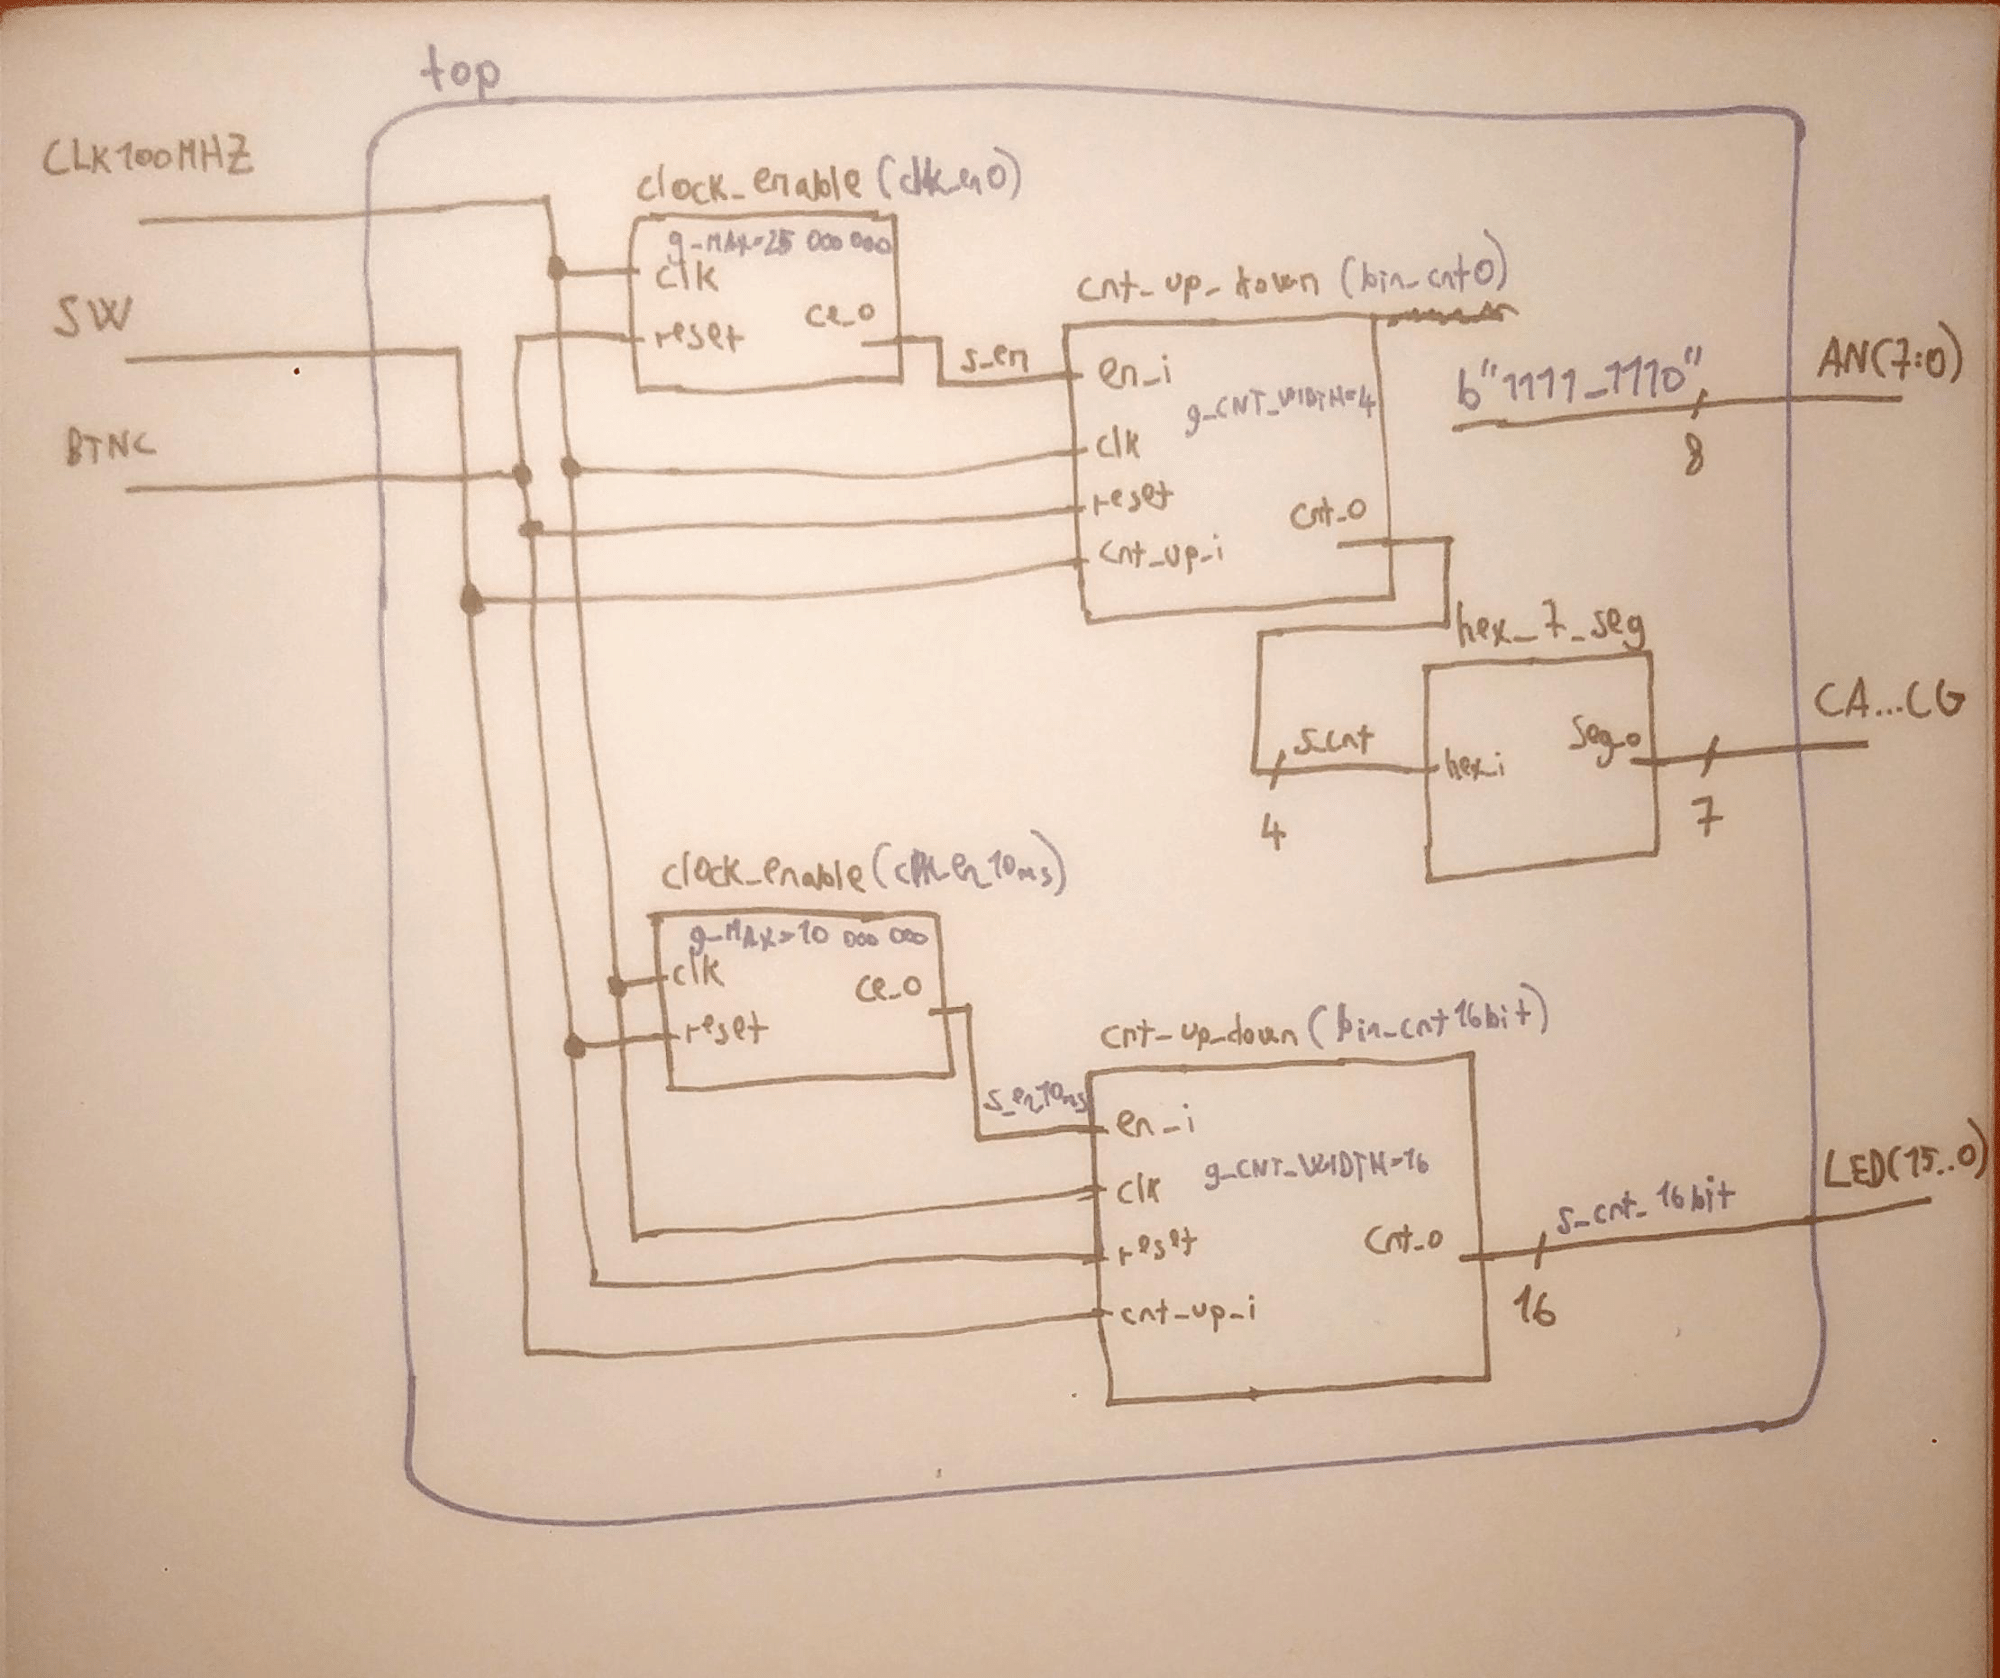 top
CLK100MHZ
SW
BTNC
clock_enable (clk_en0)
g_MAX=25 000 000
clk
reset
ce_o
s_en
cnt_up_down (bin_cnt0)
en_i
g_CNT_WIDTH=4
clk
reset
cnt_up_i
cnt_o
b"1111_1110"
8
AN(7:0)
hex_7_seg
s_cnt
4
hex_i
seg_o
7
CA...CG
clock_enable (clk_en10ms)
g_MAX=10 000 000
clk
reset
ce_o
s_en10ms
cnt_up_down (bin_cnt16bit)
en_i
g_CNT_WIDTH=16
clk
reset
cnt_up_i
cnt_o
s_cnt_16bit
16
LED(15..0)